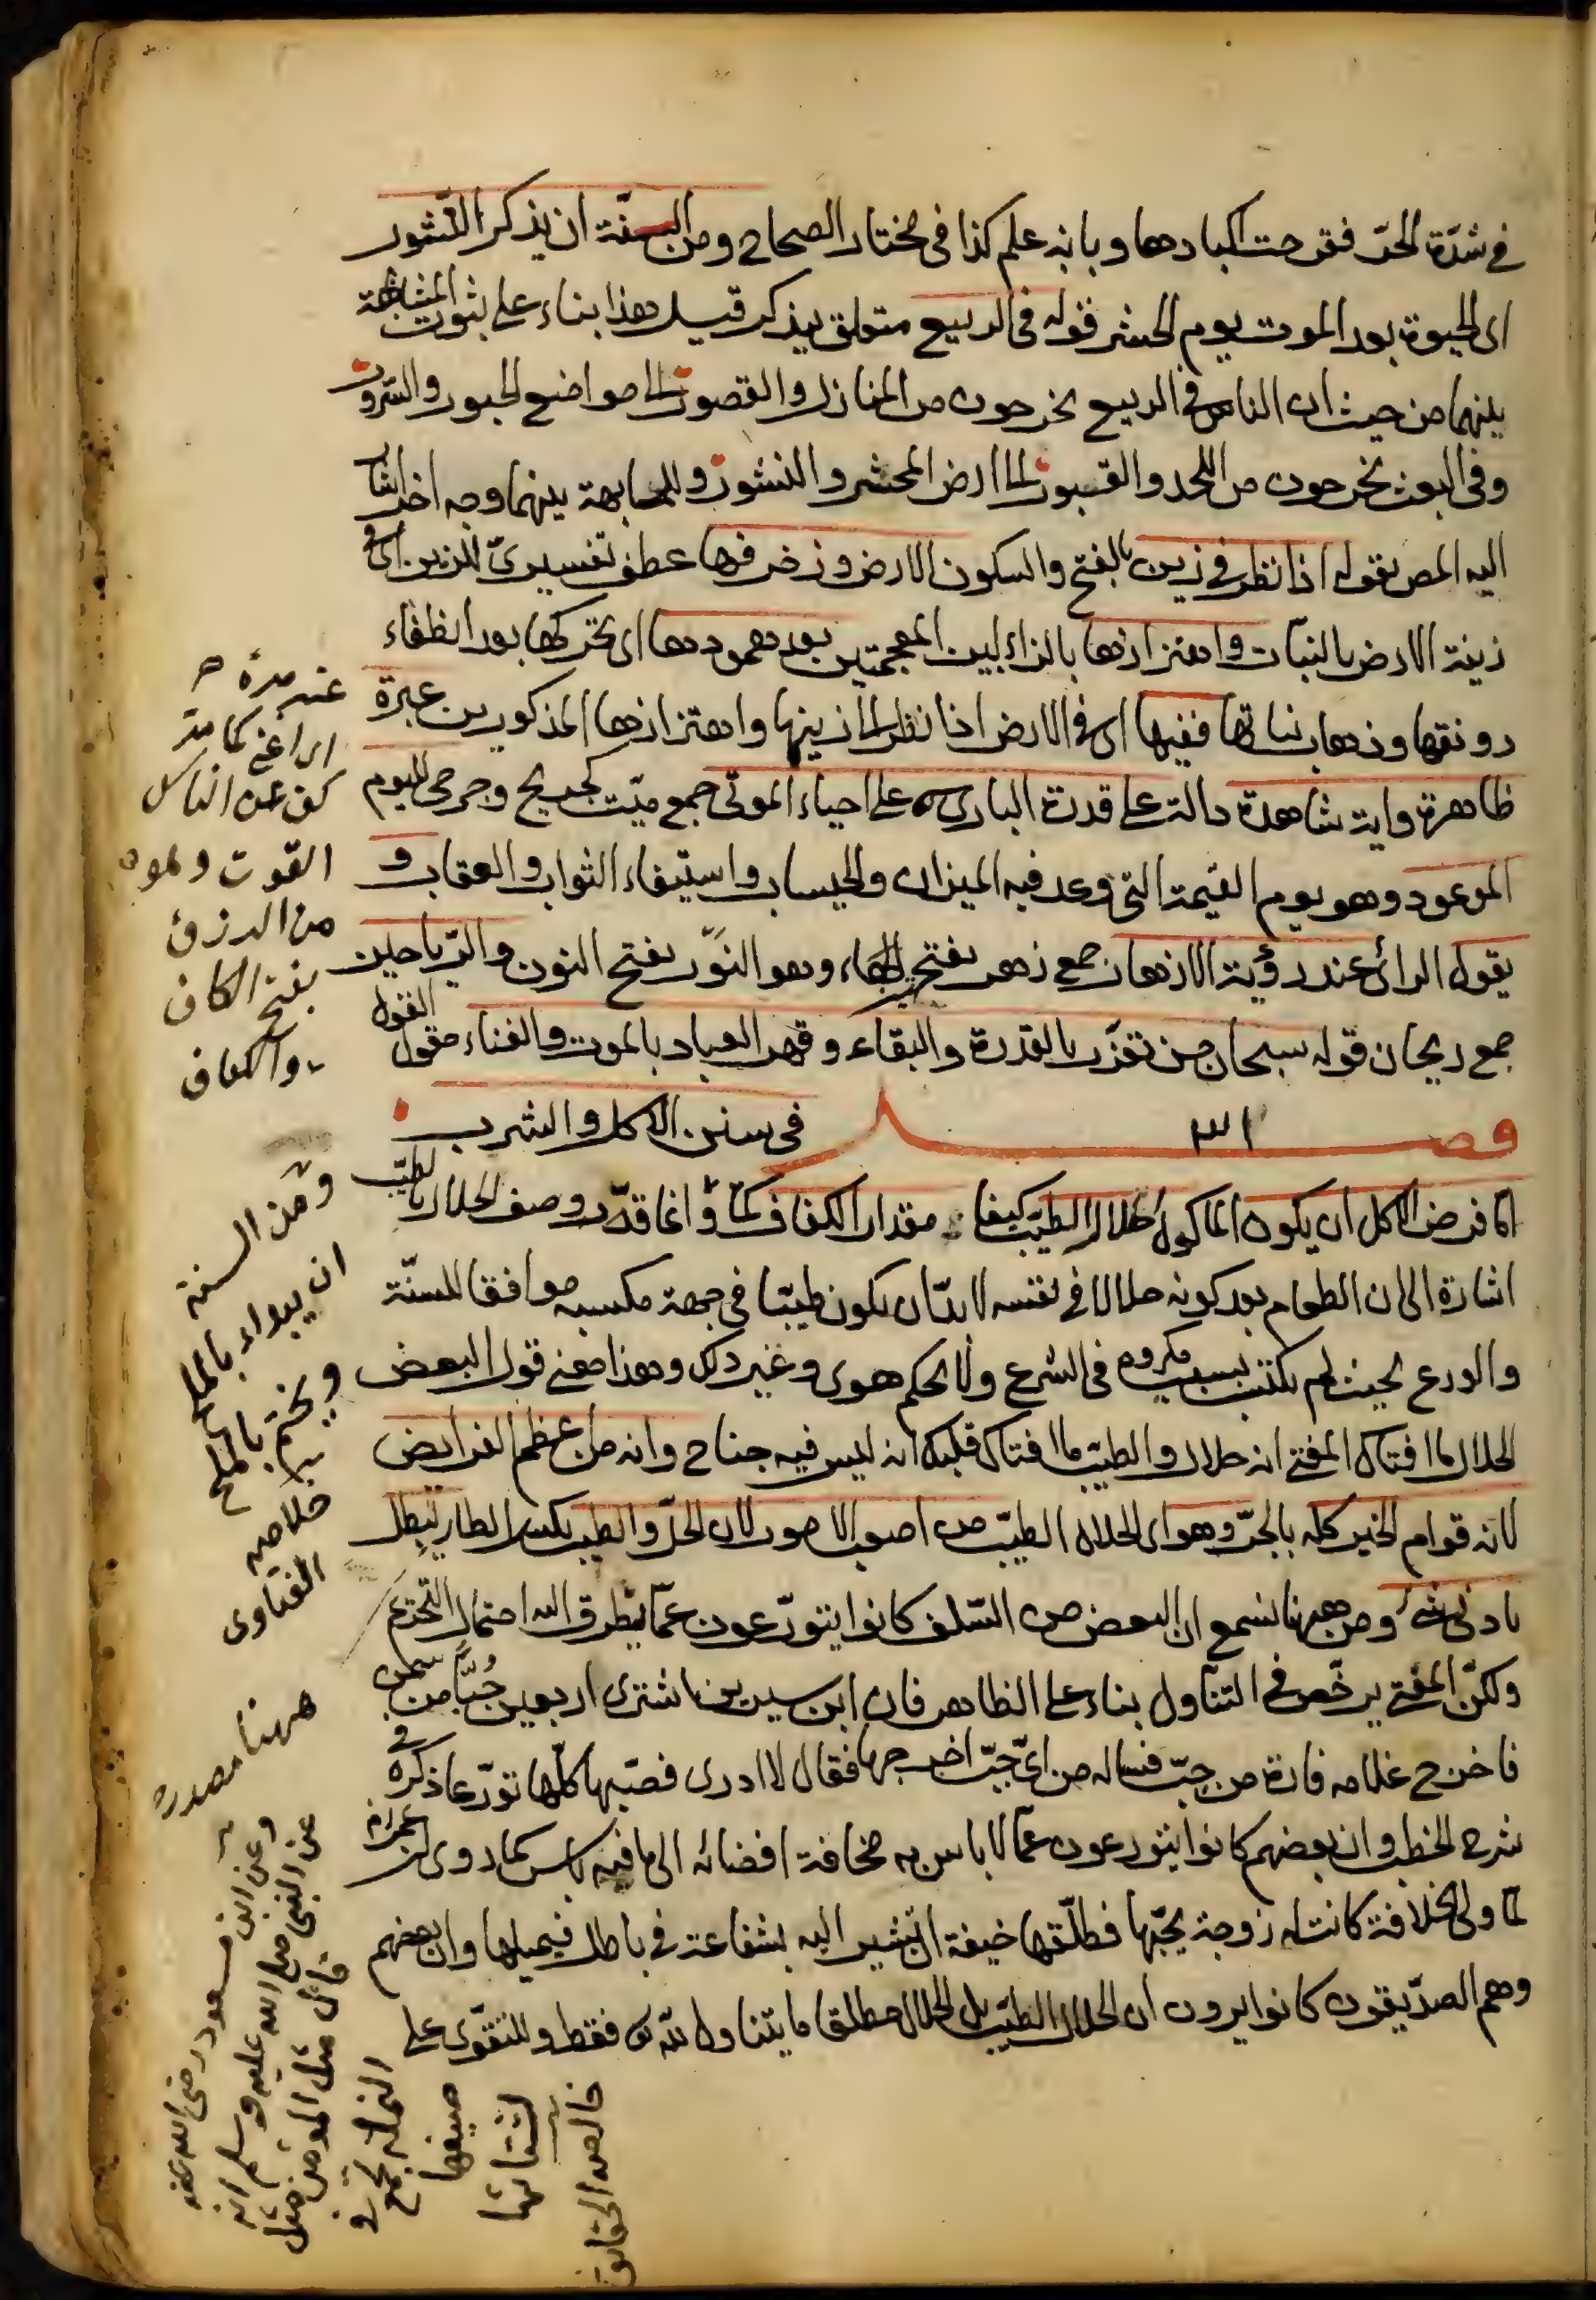 في شدة الحر فقرحت اكبادها وبابه علم كذا في مختار الصحاح ومن السنة ان يذكر النشور
اى الحيوة بعد الموت يوم الحشر قوله في الربيع متعلق بيذكر قيل هذا بناء على ثبوت المشابهة
بينهما من حيث ان الناس في الربيع يخرجون من المنازل والقصور الى مواضع الحبور والسرور
وفي البعث يخرجون من اللحد والقبور الى ارض المحشر والنشور وللمشابهة بينهما وجه اخر اشار
اليه المص بقوله اذا نظر في زين بالفتح والسكون الارض وزخرفها عطف تفسيرى للزين اى في
زينة الارض بالنبات واهتزازها بالزاء بين المعجمتين بعد همودها اى تحركها بعد انطفاء
رونقها وذهاب نباتها ففيها اى في الارض اذا نظر الى زينها واهتزازها المذكورين عبرة
ظاهرة واية شاهدة دالة على قدرة البارى على احياء الموتى جمع ميت كجريح وجرحى لليوم
الموعود وهو يوم القيمة التى وعد فيه الميزان والحساب واستيفاء الثواب والعقاب و
يقول الرائى عند رؤية الازهار جمع زهر بفتح الهاء وهو النور بفتح النون والرياحين
جمع ريحان قوله سبحان من تعزز بالقدرة والبقاء وقهر العباد بالموت والفناء مقول القول
فصل ٣١ في سنن الاكل والشرب
اما فرض الاكل ان يكون المأكول الحلال الطيب كيفا مقدار الكفاف كما وانما قدر وصف الحلال بالطيب
اشارة الى ان الطعام بعد كونه حلالا في نفسه لابد ان يكون طيبا في جهة مكسبه موافقا للسنة
والورع بحيث لم يكتسب بسبب مكروه في الشرع ولا بحكم هوى وغير ذلك وهذا معنى قول البعض
الحلال ما افتاك المفتى انه حلال والطيب ما افتاك قلبك انه ليس فيه جناح وانه من اعظم الفرايض
لانه قوام الخير كله بالجر وهو اى الحلال الطيب من اصعب الامور لان الحل والطيب بكسر الطاء يبطل
بادنى شئ ومن ههنا نسمع ان البعض من السلف كانوا يتورعون عما يتطرق اليه احتمال التحريم
ولكن المفتى يرخص في التناول بناء على الظاهر فان ابن سيرين اشترى اربعين حبا من سمن
فاخرج غلامه فارة من حب فساله من اى حب اخرجها فقال لا ادرى فصبها كلها تورعا ذكره في
شرح الخطب وان بعضهم كانوا يتورعون عما لا باس به مخافة افضائه الى ما فيه باس كما روى ان عمر رضه
لما ولى الخلافة كانت له زوجة يحبها فطلقها خيفة ان تشير اليه بشفاعة في باطل فيميلها وان بعضهم
وهم الصديقون كانوا يرون ان الحلال الطيب بل الحلال مطلقا ما يتناول لله تع فقط وللتقوى على
كف عن الناس
القوت
من الرزق
بفتح الكاف
والكفاف
ومن السنة
ان يبداء بالملح
ويختم بالملح
خلاصه
الفتاوى
ههنا مصدر
وعن ابن مسعود رضى الله عنه
عن النبى صلى الله عليه وسلم انه
قال مثل المؤمن مثل
النملة تجمع في
صيفها
لشتائها
خالصة الحقايق